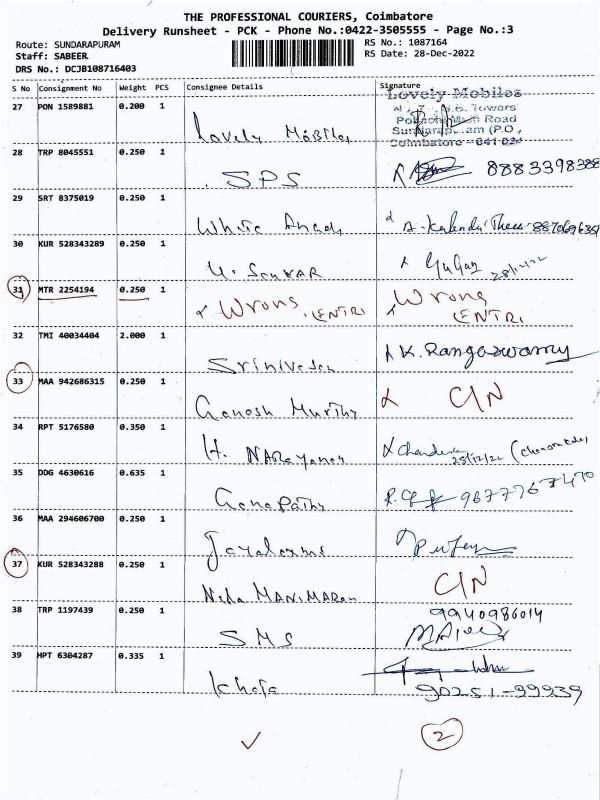 THE PROFESSIONAL COURIERS, Coimbatore
Delivery Runsheet - PCK - Phone No.:0422-3505555 - Page No.:3
Route: SUNDARAPURAM
RS No.: 1087164
Staff: SABEER
RS Date: 28-Dec-2022
DRS No.: DCJB108716403
S No Consignment No Weight PCS Consignee Details Signature
27 PON 1589881 0.200 1 Lovely Mobiles
Lovely Mobiles
Towers
Main Road
(P.O.,
Coimbatore - 641 024
28 TRP 8045551 0.250 1 SPS 8883398388
29 SRT 8375019 0.250 1 White
30 KUR 528343289 0.250 1 28/12/22
31 MTR 2254194 0.250 1 Wrong ENTRI Wrong ENTRI
32 TMI 40034404 2.000 1 Srinivasan K. Rangaswamy
33 MAA 942686315 0.250 1 Ganesh Murthy C/N
34 RPT 5176580 0.350 1 H. NARayanan 28/12/22
35 DDG 4630616 0.635 1 Ganapathy 9677767470
36 MAA 294606700 0.250 1
37 KUR 528343288 0.250 1 MANIMARan C/N
38 TRP 1197439 0.250 1 SMS 9940986014
39 HPT 6304287 0.335 1 90251-99939
2